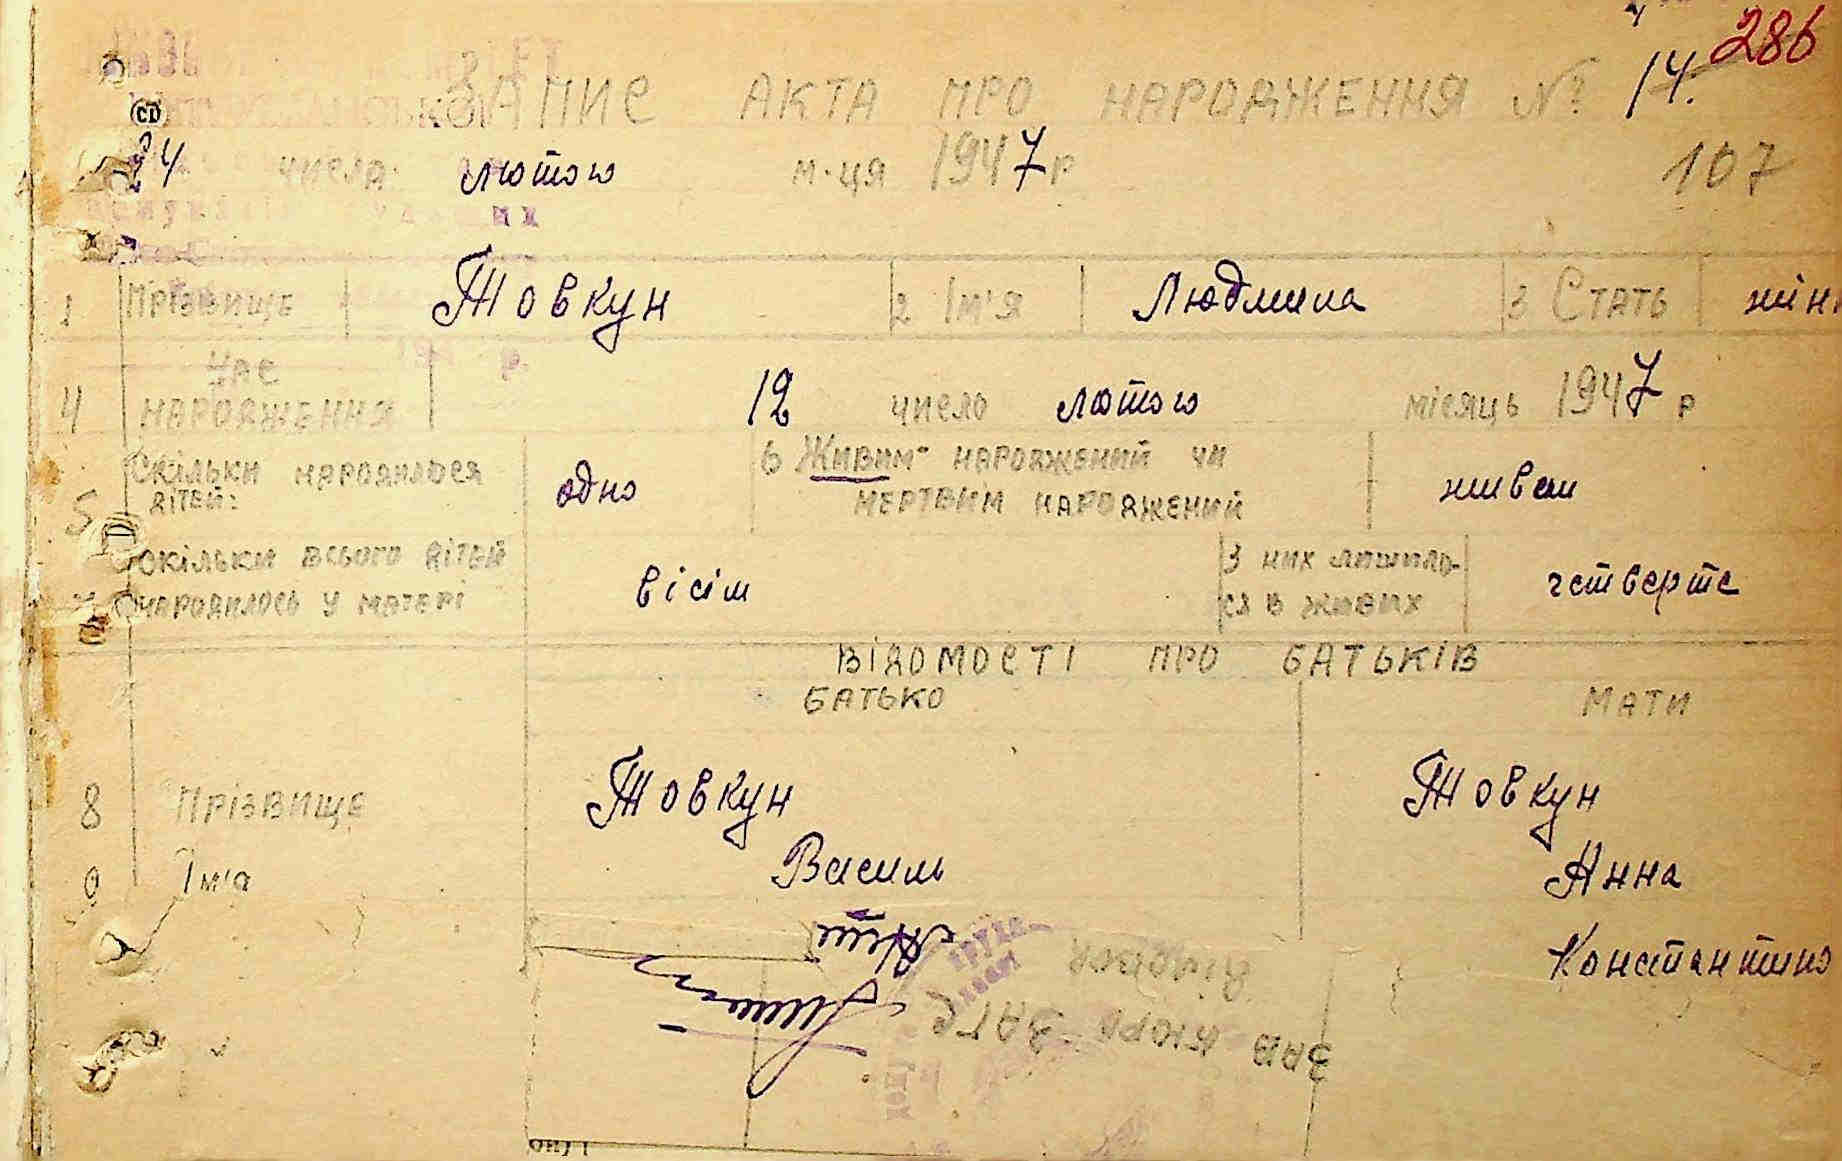 286
ЗАПИС АКТА ПРО НАРОДЖЕННЯ № 14.
24 числа лютого м-ця 1947 р
107
1 Прізвище Товкун 2 Ім'я Людмила 3 Стать жін
4 Час народження 12 число лютого місяць 1947 р
5 Скільки народилося дітей: одно 6 Живим народжений чи мертвим народжений живим
Скільки всього дітей народилось у матері вісім З них лишило-ся в живих четверте
ВІДОМОСТІ ПРО БАТЬКІВ
БАТЬКО МАТИ
8 Прізвище Товкун Товкун
9 Ім'я Василь Анна
Константино
Зав бюро ЗАГС